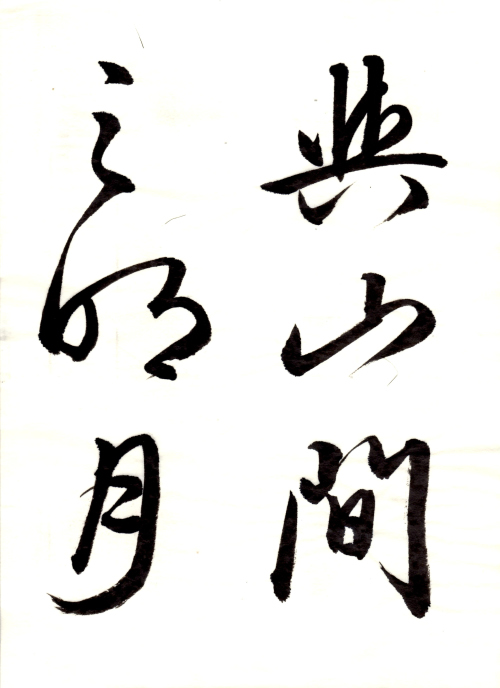 與山間
之明月